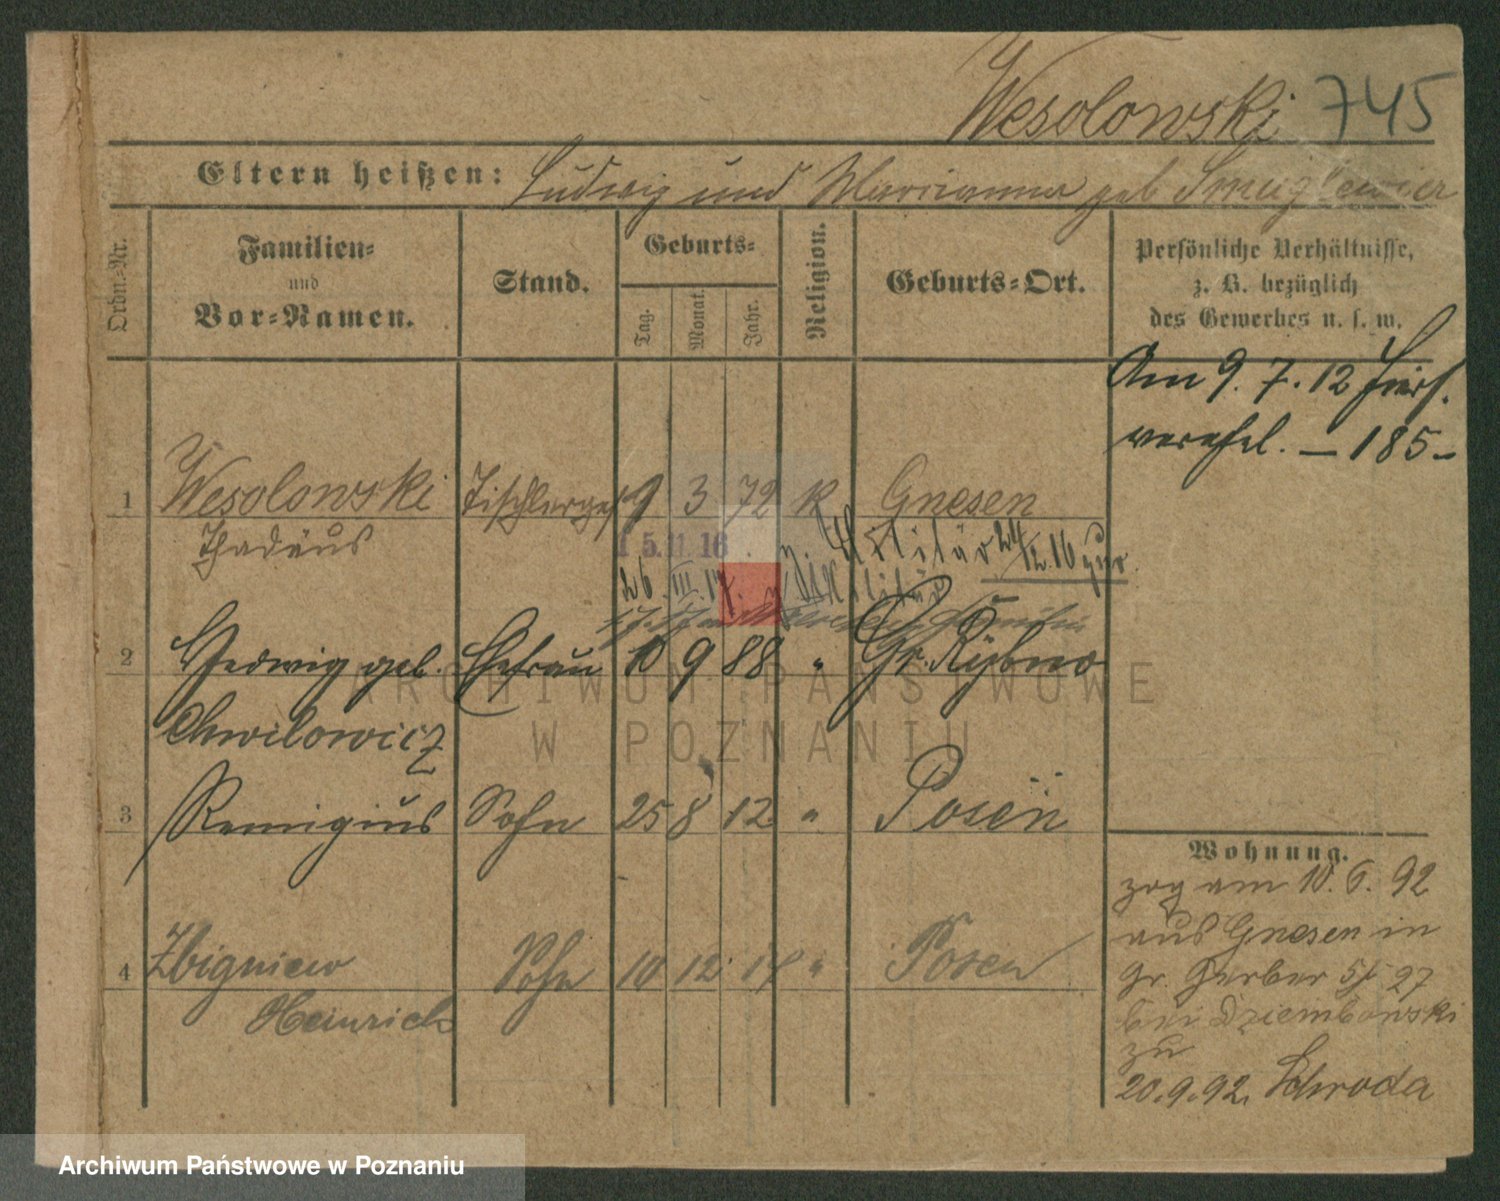 Wesolowski 745
Eltern heißen: Ludwig und Marianna geb Smuglewicz
Ordn.-Nr.
Familien-
und
Vor-Namen.
Stand.
Geburts-
Tag.
Monat.
Jahr.
Religion.
Geburts-Ort.
Persönliche Verhältnisse,
z. B. bezüglich
des Gewerbes u. s. w.
Am 9. 7. 12 hier
verehel. — 185 —
1 Wesolowski Tischlerges 9 3 72 k Gnesen
Thadäus
15.11.16 z. Militär 24/12.16 zur.
26. III. 17. z. Militär
2 Hedwig geb. Ehefrau 10 9 88 " Gr. Rybno
Chwilowicz
3 Remigius Sohn 25 8 12 " Posen
4 Zbigniew Sohn 10 12 14 " Posen
Heinrich
Wohnung.
zog am 10. 6. 92
aus Gnesen in
Gr. Gerber str 27
bei Dziembowski
zu
20.9.92. Schroda
ARCHIWUM PAŃSTWOWE
W POZNANIU
Archiwum Państwowe w Poznaniu